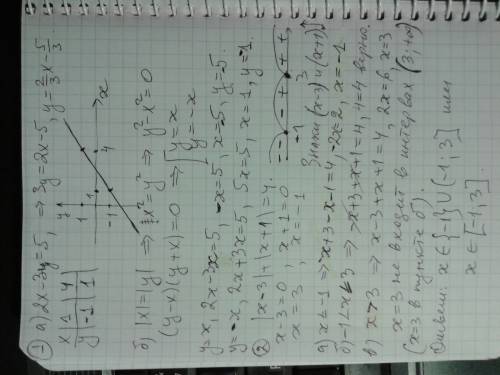 ① а) 2x-3y=5, ⇒ 3y=2x-5, y=2/3x-5/3
x | 1 | 4
y | -1 | 1
y
1
1
4
-1
x
б) |x|=|y| ⇒ x²=y² ⇒ y²-x²=0
(y-x)(y+x)=0 ⇒ [y=x
y=-x
y=x, 2x-3x=5, -x=5, x=-5, y=-5.
y=-x, 2x+3x=5, 5x=5, x=1, y=-1.
② |x-3|+|x+1|=4.
x-3=0, x+1=0
x=3, x=-1
-- -+ ++
-1 3
Знаки (x-3) и (x+1)↑
а) x≤-1 ⇒ -x+3-x-1=4, -2x=2, x=-1
б) -1<x≤3 ⇒ -x+3+x+1=4, 4=4 верно.
в) x>3 ⇒ x-3+x+1=4, 2x=6, x=3
x=3 не входит в интервал (3;+∞)
(x=3 в пункте б).
Ответ: x∈{-1}∪(-1;3] или
x∈[-1;3]